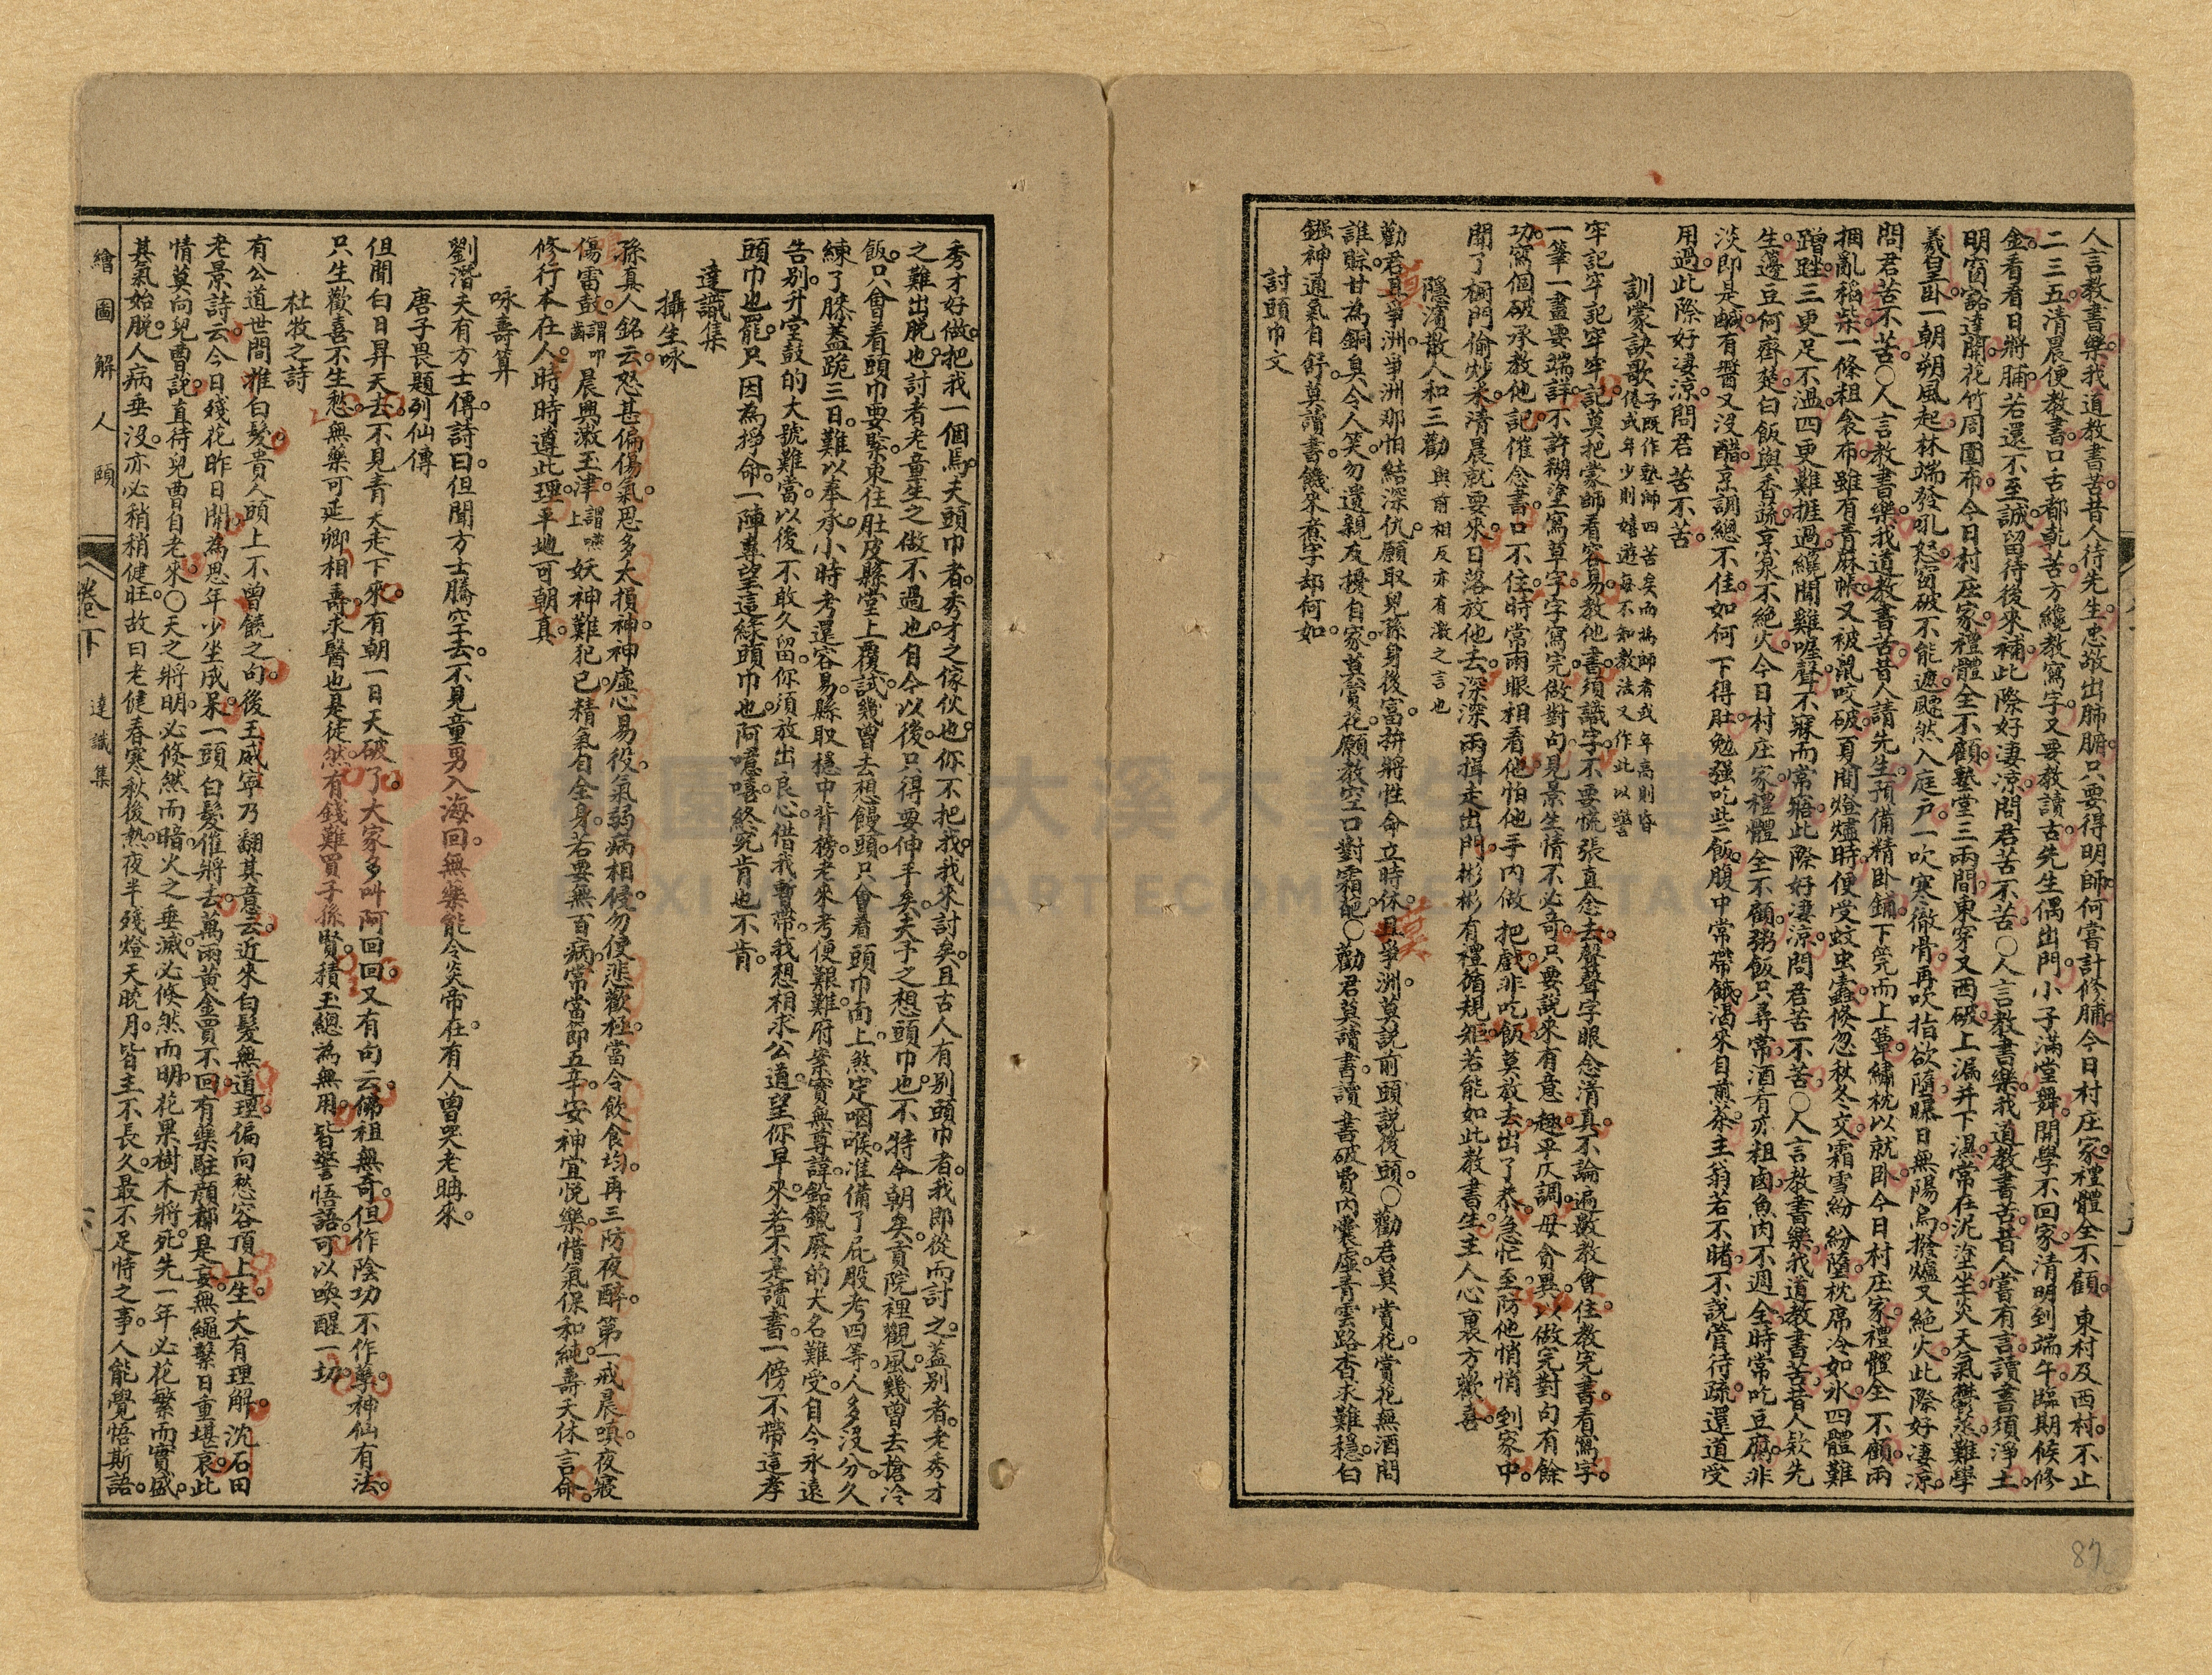 人言教書樂我道教書苦昔人待先生忠敬出肺腑只要得明師何嘗計修脯今日村庄家禮體全不顧東村及西村不止
二三五清晨便教書口舌都乾苦方纔教寫字又要教讀古先生偶出門小子滿堂舞開學不回家清明到端午臨期候修
金看看日將脯若還不至誠留待後來補此際好凄涼問君苦不苦〇人言教書樂我道教書苦昔人嘗有言讀書須淨土
明窗豁達開花竹周圍布今日村庄家禮體全不顧塾堂三兩間東穿又西破上漏并下濕常在泥塗坐炎天氣鬱蒸難學
羲皇卧一朝朔風起林端發吼怒窗破不能遮颼然入庭戶一吹寒徹骨再吹指欲墮曝日無陽烏撥爐又絕火此際好凄涼
問君苦不苦〇人言教書樂我道教書苦昔人請先生預備精卧鋪下筦而上簟繡枕以就卧今日村庄家禮體全不顧兩
捆亂稻柴一條粗衾布雖有青麻帳又被鼠咬破頁間燈燼時便受蚊虫蠹倏忽秋冬交霜雪紛紛墮枕席冷如氷四體難
蹭跓三更足不溫四更難捱過纔聞雞喔聲不寐而常寤此際好凄涼問君苦不苦〇人言教書樂我道教書苦昔人欵先
生籩豆何齊楚白飯與香蔬烹泉不絕火今日村庄家禮體全不顧粥飯只尋常酒肴亦粗鹵魚肉不週全時常吃豆腐非
淡即是鹹有醬又沒醋烹調總不佳如何下得肚勉强吃些飯腹中常帶餓渴來自煎茶主翁若不睹不說管待疏還道受
用過此際好凄涼問君苦不苦
訓蒙訣歌子既作塾師四苦矣而為師者或年高則昏倦或年少則嬉遊每不知教法又作此以警
牢記牢記牢牢記莫把蒙師看容易教他書須識字不要慌張直念去聲聲字眼念清真不論遍數教會住教完書看寫字
一筆一畫要端詳不許糊塗寫草字字寫完做對句見景生情不必奇只要說來有意趣平仄調毋貪異以做完對句有餘
功寫個破承教他記催念書口不住時常兩眼相看他怕他手內做把戲非吃飯莫放去出了恭急忙至防他悄悄到家中
開了櫥門偷炒米清晨就要來日落放他去深深兩揖走出門彬彬有禮循規矩若能如此教書生主人心裏方歡喜
隱濱散人和三勸與前相反亦有激之言也
勸君且爭洲爭洲那怕結深仇願取兒孫身後富拚將性命立時休且爭洲莫說前頭說後頭〇勸君莫賞花賞花無酒問
誰賒甘為銅臭令人笑勿遺親友擾自家莫賞花願教空口對霜葩〇勸君莫讀書讀書破費內囊虛青雲路杳求難穩白
鏹神通氣自舒莫讀書饑來煮字却何如
討頭巾文
秀才好做把我一個馬夫頭巾者秀才之傢伙也你不把我我來討矣且古人有別頭巾者我即從而討之蓋別者老秀才
之難出脫也討者老童生之做不過也自今以後只得要伸手矣夫予之想頭巾也不特今朝矣貢院裡觀風幾曾去搶冷
飯只會着頭巾要緊束住肚皮縣堂上覆試幾曾去想饅頭只會看頭巾面上煞定咽喉准備了屁股考四等人多沒分久
練了膝蓋跪三日難以奉承小時考還容易縣取穩中背榜老來考便艱難府案實無尊諱鉛鑞廢的大名難受自今永遠
告別升堂鼓的大號難當以後不敢久留你須放出良心借我暫帶我想相求公道望你早來若不是讀書一傍不帶這孝
頭巾也罷只因為掙命一陣專望這綠頭巾也阿噫嘻終究肯也不肯
達識集
攝生咏
孫真人銘云怒甚偏傷氣思多太損神神虛心易役氣弱病相侵勿使悲歡極當令飲食均再三防夜醉第一戒晨嗔夜寢
傷雷鼓謂叩齒晨興漱玉津謂嚥上妖神難犯已精氣自全身若要無百病常當節五辛安神宜悅樂惜氣保和純壽夭休言命
修行本在人時時遵此理平地可朝真
咏壽算
劉潛夫有方士傳詩曰但聞方士騰空去不見童男入海回無藥能令炎帝在有人曾哭老聃來
唐子畏題列仙傳
但聞白日昇天去不見青天走下來有朝一日天破了大家多叫阿回回又有句云佛祖無奇但作陰功不作孽神仙有法
只生歡喜不生愁無藥可延卿相壽求醫也是徒然有錢難買子孫賢積玉總為無用皆警悟語可以喚醒一切
杜牧之詩
有公道世間惟白髮貴人頭上不曾饒之句後王威寧乃翻其意云近來白髮無道理偏向愁容頂上生大有理解沈石田
老景詩云今日殘花昨日開為思年少坐成呆一頭白髮催將去萬兩黃金買不回有藥駐顏都是妄無繩繫日重堪哀此
情莫向兒曹說直待兒曹自老來〇天之將明必倏然而暗火之垂滅必倏然而明花果樹木將死先一年必花繁而實盛
其氣始脫人病垂沒亦必稍稍健旺故曰老健春寒秋後熱夜半殘燈天曉月皆主不長久最不足恃之事人能覺悟斯語
繪圖解人頤 卷下 達識集
87